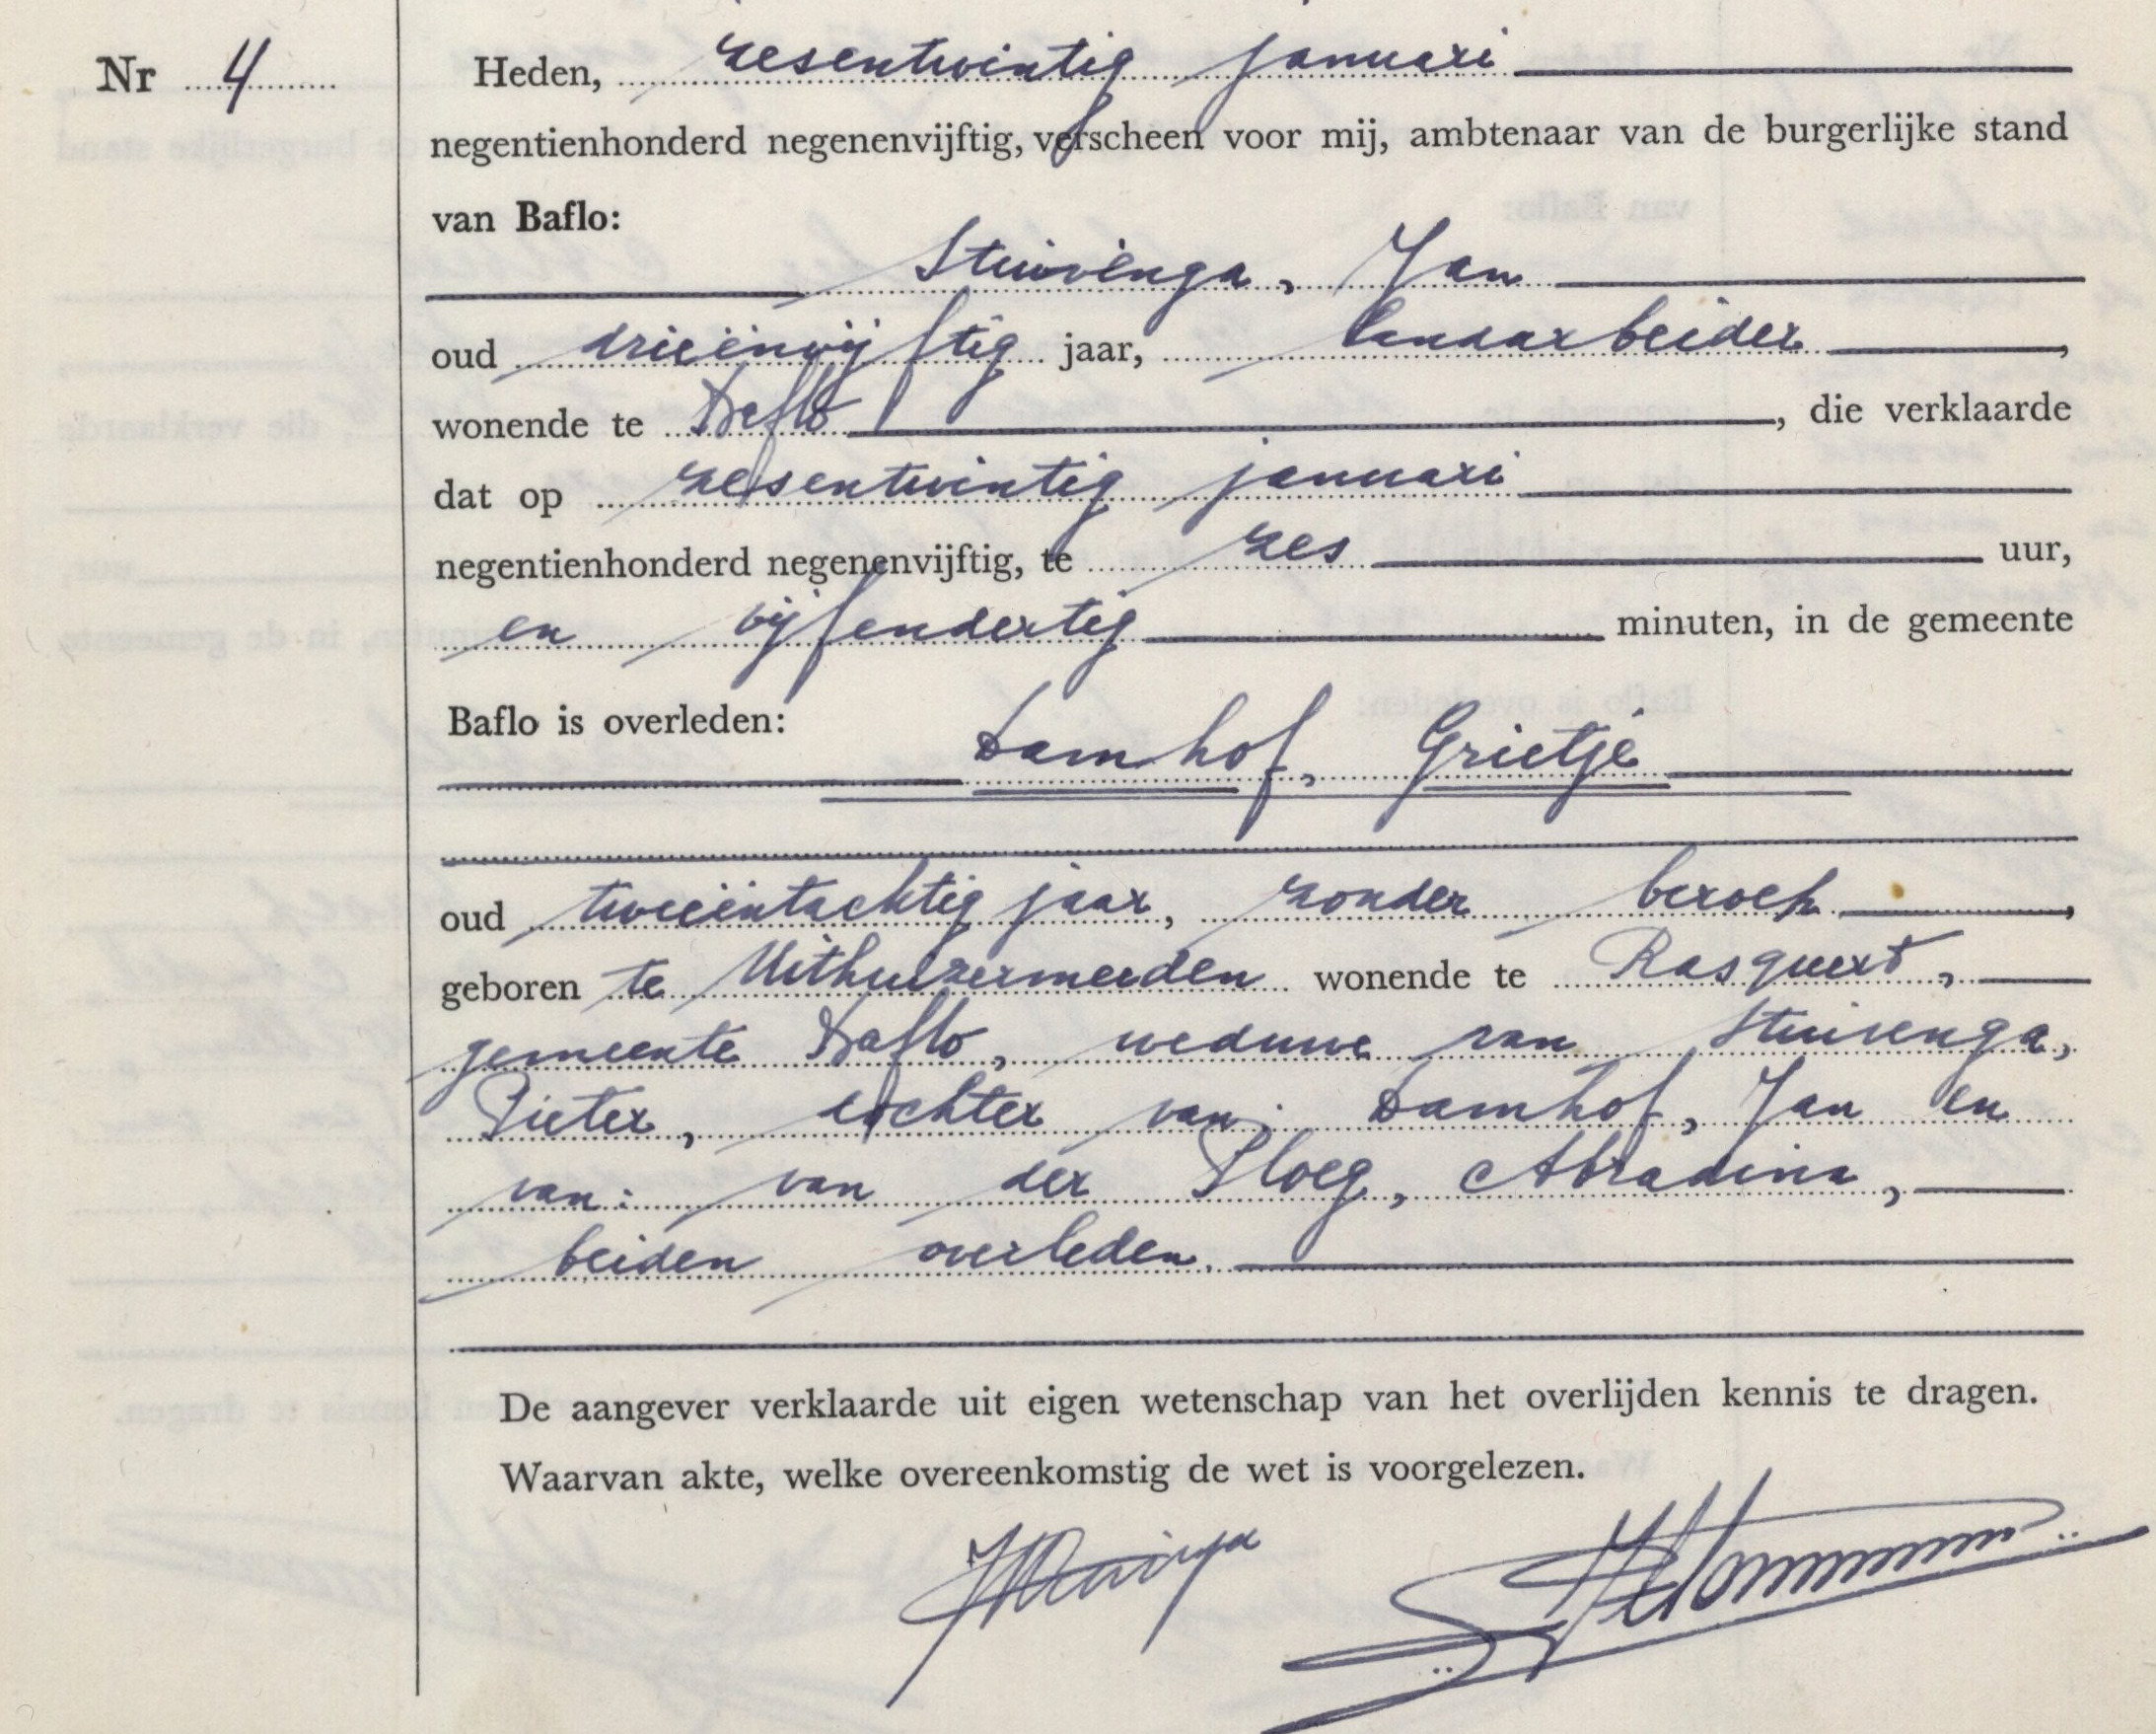 Nr 4
Heden, zesentwintig januari
negentienhonderd negenenvijftig, verscheen voor mij, ambtenaar van de burgerlijke stand
van Baflo:
Stuivenga, Jan
oud drieënvijftig jaar, landarbeider,
wonende te Baflo, die verklaarde
dat op zesentwintig januari
negentienhonderd negenenvijftig, te zes uur,
en vijfendertig minuten, in de gemeente
Baflo is overleden:
Damhof, Grietje
oud tweeëntachtig jaar, zonder beroep,
geboren te Uithuizermeeden wonende te Rasquert,
gemeente Baflo, weduwe van Stuivenga,
Pieter, dochter van: Damhof, Jan en
van: van der Ploeg, Abradina,
beiden overleden.
De aangever verklaarde uit eigen wetenschap van het overlijden kennis te dragen.
Waarvan akte, welke overeenkomstig de wet is voorgelezen.